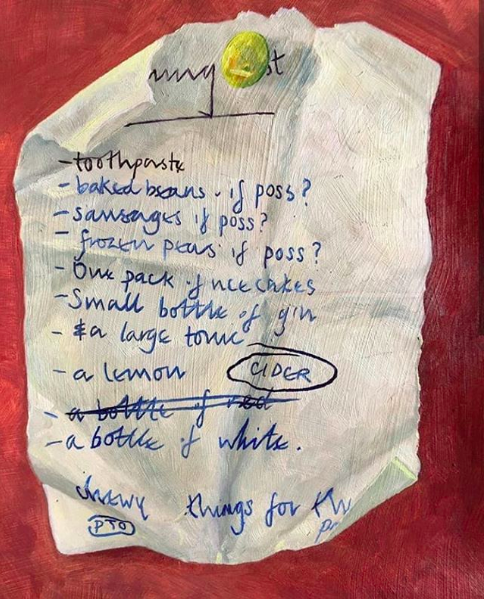 - toothpaste
- baked beans. if poss?
- sausages if poss?
- frozen peas if poss?
- One pack of ricecakes
- Small bottle of gin
- & a large tonic
- a lemon CIDER
- a bottle of red
- a bottle of white.
chewy things for
PTO